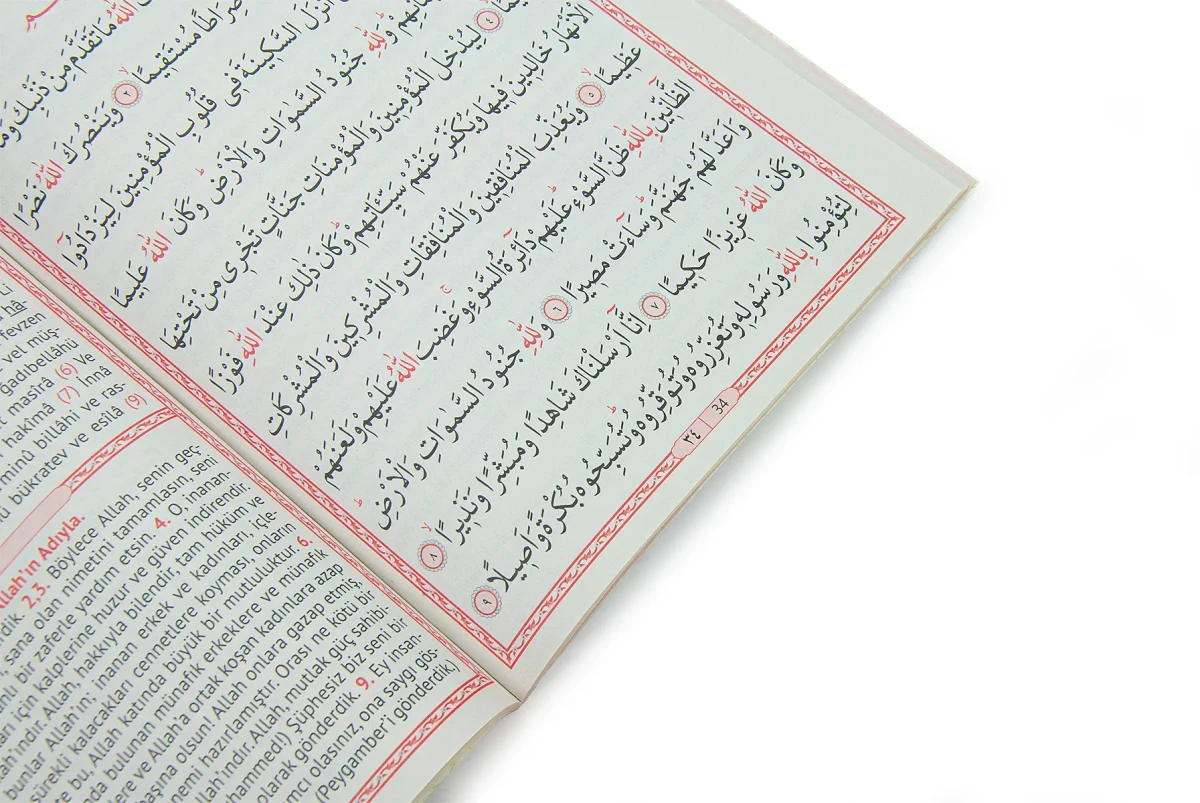 اللّٰهُ مَا تَقَدَّمَ مِنْ ذَنْبِكَ وَمَا
صِرَاطًا مُسْتَقِيمًا ﴿٢﴾ وَيَنْصُرَكَ اللّٰهُ نَصْرًا
اَنْزَلَ السَّكِينَةَ فِى قُلُوبِ الْمُؤْمِنِينَ لِيَزْدَادُوا
وَلِلّٰهِ جُنُودُ السَّمٰوَاتِ وَالْاَرْضِ وَكَانَ اللّٰهُ عَلِيمًا
﴿٤﴾ لِيُدْخِلَ الْمُؤْمِنِينَ وَالْمُؤْمِنَاتِ جَنَّاتٍ تَجْرِى مِنْ تَحْتِهَا
الْاَنْهَارُ خَالِدِينَ فِيهَا وَيُكَفِّرَ عَنْهُمْ سَيِّـَٔاتِهِمْ وَكَانَ ذٰلِكَ عِنْدَ اللّٰهِ فَوْزًا
عَظِيمًا ﴿٥﴾ وَيُعَذِّبَ الْمُنَافِقِينَ وَالْمُنَافِقَاتِ وَالْمُشْرِكِينَ وَالْمُشْرِكَاتِ
الظَّانِّينَ بِاللّٰهِ ظَنَّ السَّوْءِ عَلَيْهِمْ دَائِرَةُ السَّوْءِ وَغَضِبَ اللّٰهُ عَلَيْهِمْ وَلَعَنَهُمْ
وَاَعَدَّ لَهُمْ جَهَنَّمَ وَسَاءَتْ مَصِيرًا ﴿٦﴾ وَلِلّٰهِ جُنُودُ السَّمٰوَاتِ وَالْاَرْضِ
وَكَانَ اللّٰهُ عَزِيزًا حَكِيمًا ﴿٧﴾ اِنَّا اَرْسَلْنَاكَ شَاهِدًا وَمُبَشِّرًا وَنَذِيرًا ﴿٨﴾
لِتُؤْمِنُوا بِاللّٰهِ وَرَسُولِهِ وَتُعَزِّرُوهُ وَتُوَقِّرُوهُ وَتُسَبِّحُوهُ بُكْرَةً وَاَصِيلًا ﴿٩﴾
٣٤ 34
fevzen
vel müş-
ğadıbellâhü
masîrâ (6) Ve
hakîmâ (7) İnnâ
minû billâhi ve ras-
bükratev ve esîlâ (9)
Allah'ın Adıyla.
2,3. Böylece Allah, senin geç-
sana olan nimetini tamamlasın, seni
bir zaferle yardım etsin. 4. O, inanan-
için kalplerine huzur ve güven indirendir.
Allah, hakkıyla bilendir, tam hüküm ve
bunlar Allah'ın; inanan erkek ve kadınları, içle-
sürekli kalacakları cennetlere koyması, onların
bu, Allah katında büyük bir mutluluktur. 6.
bulunan münafık erkeklere ve münafık
ve Allah'a ortak koşan kadınlara azap
başına olsun! Allah onlara gazap etmiş,
hazırlamıştır. Orası ne kötü bir
Allah, mutlak güç sahibi-
Şüphesiz biz seni bir
olarak gönderdik. 9. Ey insan-
olasınız, ona saygı gös-
(Peygamber'i gönderdik.)